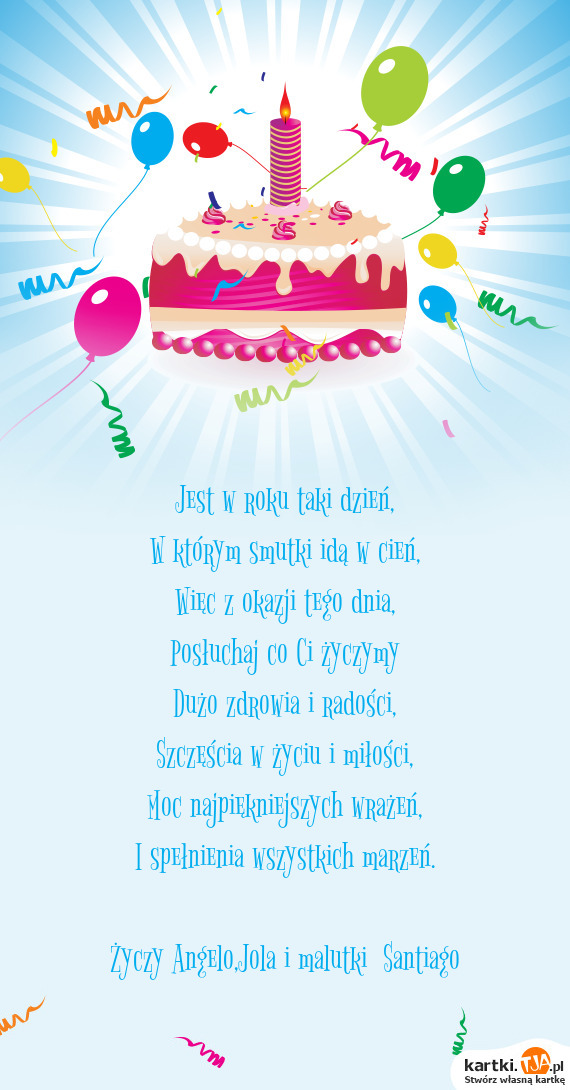 Jest w roku taki dzień,
W którym smutki idą w cień,
Więc z okazji tego dnia,
Posłuchaj co Ci życzymy
Dużo zdrowia i radości,
Szczęścia w życiu i miłości,
Moc najpiękniejszych wrażeń,
I spełnienia wszystkich marzeń.
Życzy Angelo,Jola i malutki Santiago
kartki.TJA.pl
Stwórz własną kartkę